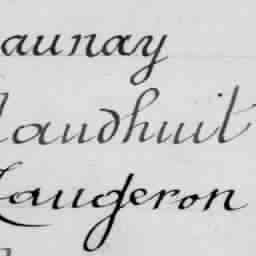 aunay
laudhuit
Laugeron